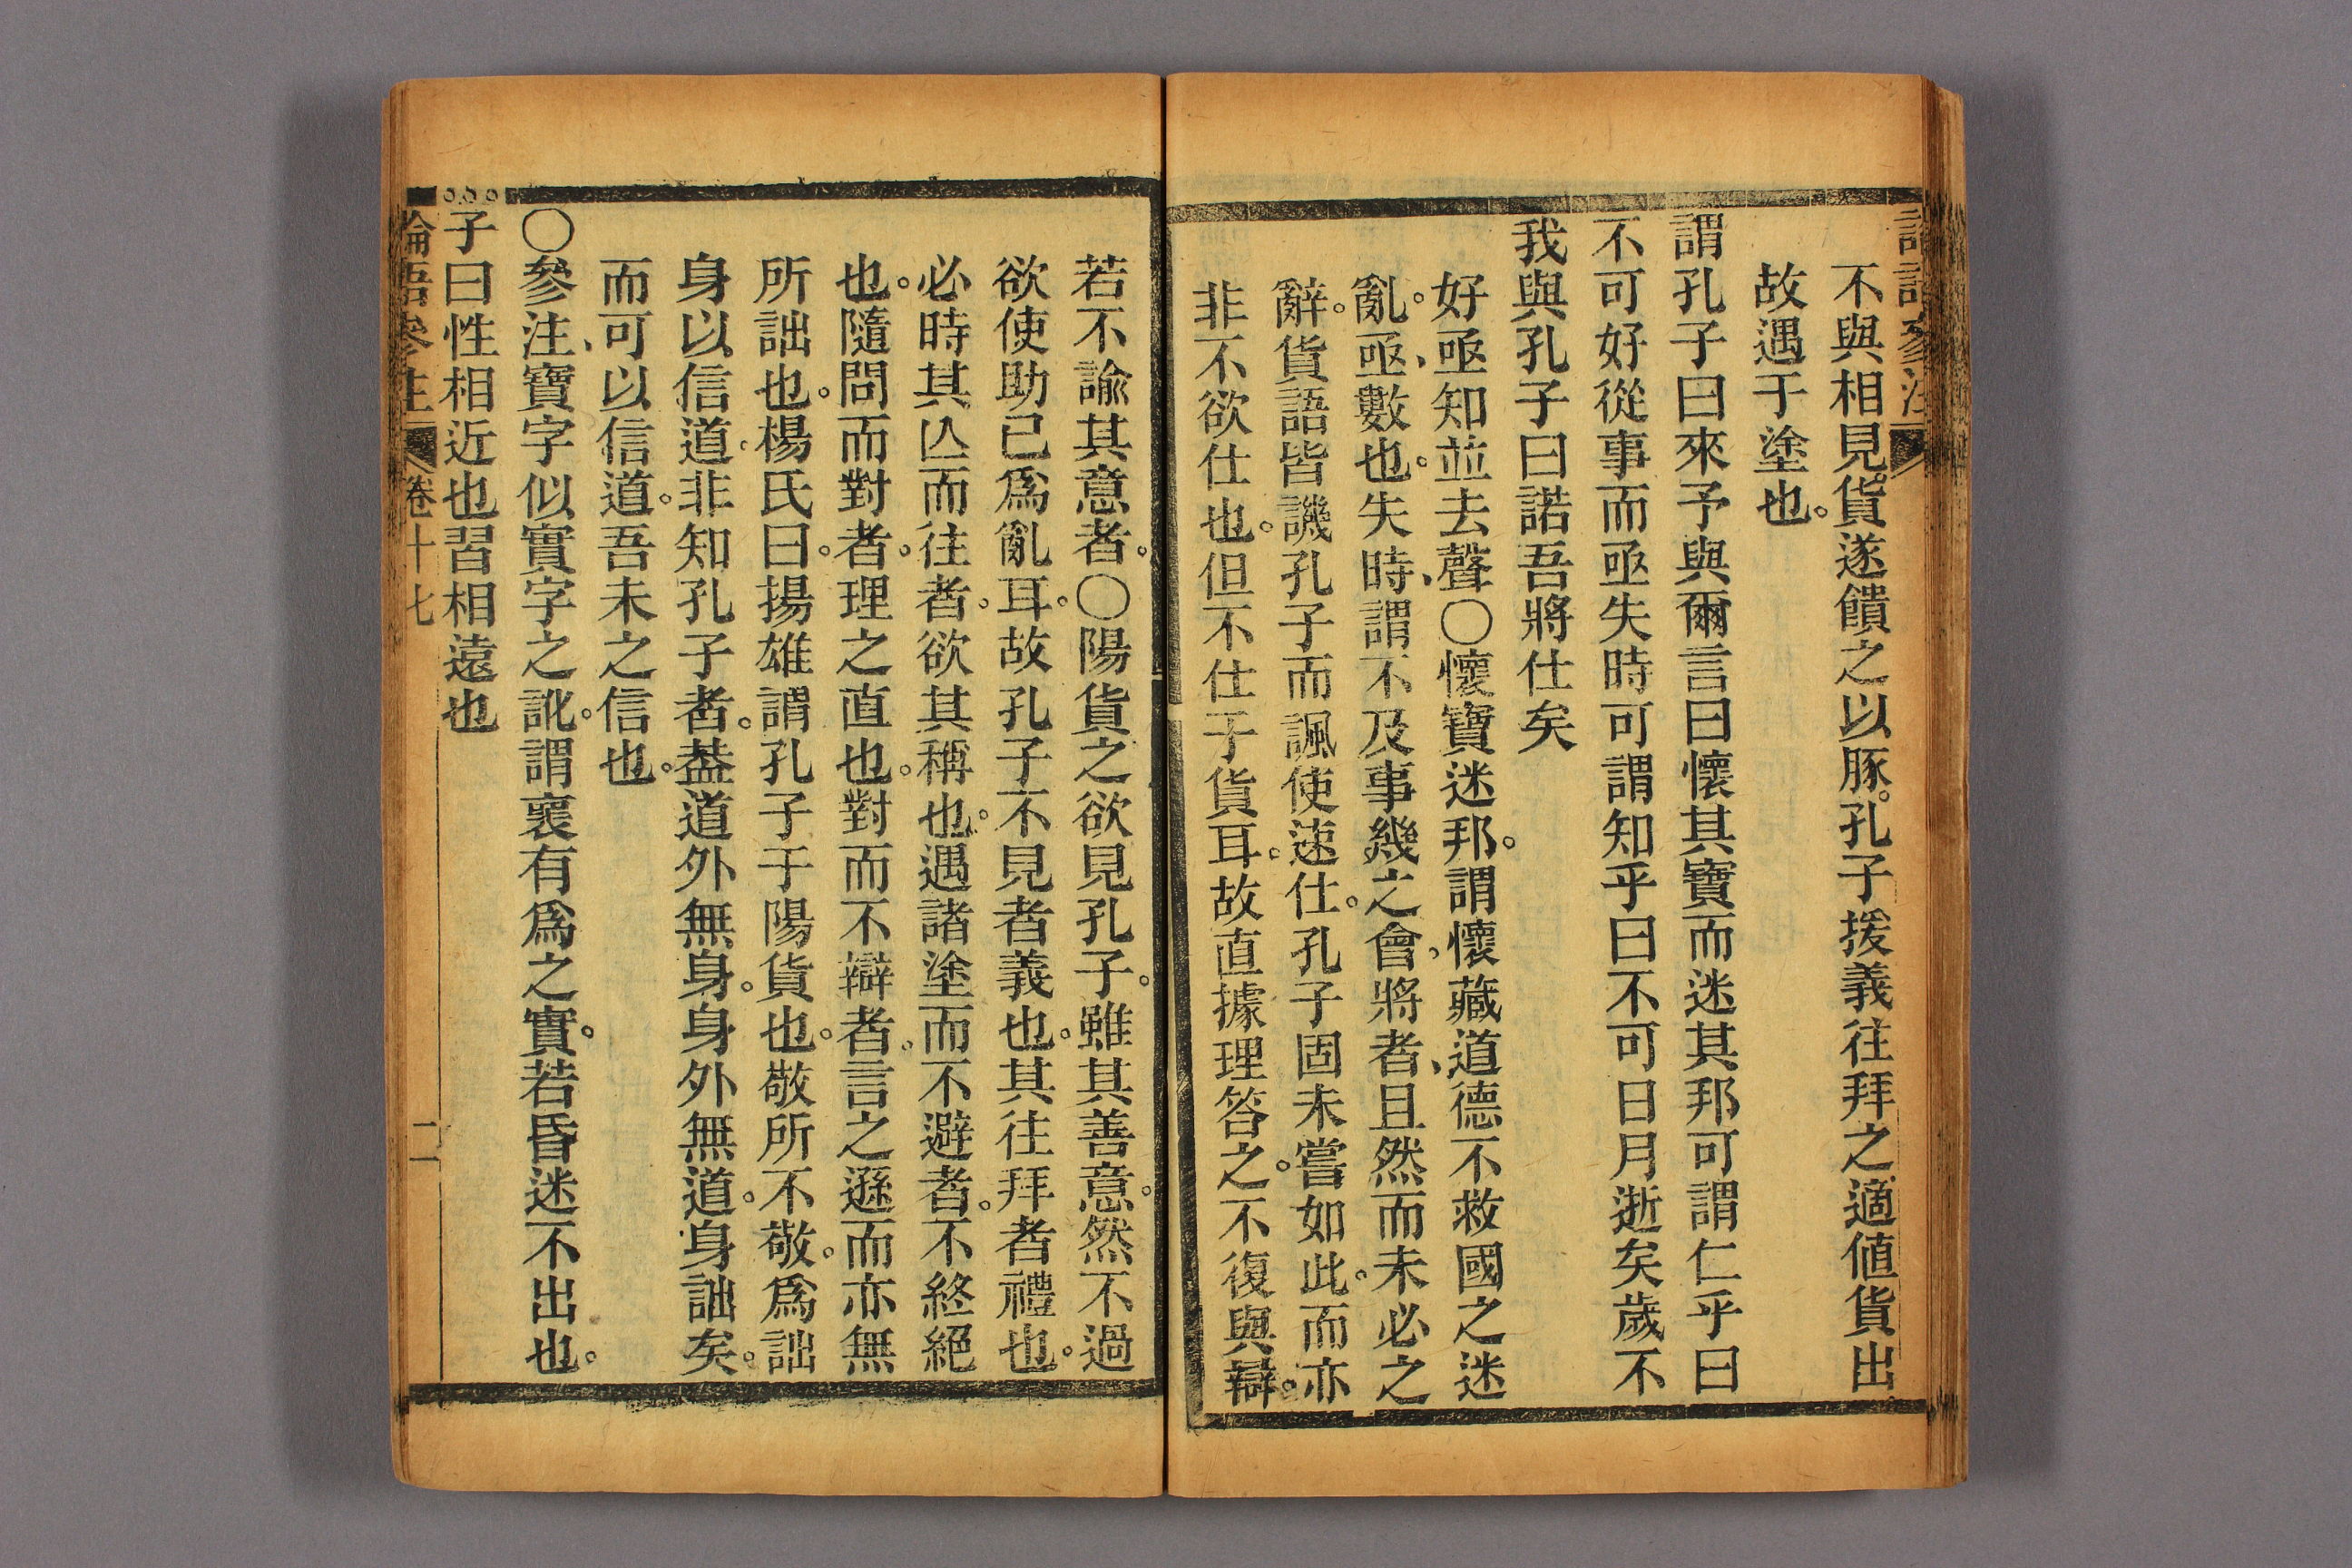 不與相見。貨遂饋之以豚。孔子援義往拜之適値貨出。
故遇于塗也。
謂孔子曰來予與爾言曰懷其寶而迷其邦可謂仁乎曰
不可好從事而亟失時可謂知乎曰不可日月逝矣歲不
我與孔子曰諾吾將仕矣
好亟知並去聲〇懷寶迷邦。謂懷藏道德不救國之迷
亂。亟、數也。失時、謂不及事幾之會、將者、且然而未必之
辭。貨語皆譏孔子而諷使速仕。孔子固未嘗如此。而亦
非不欲仕也。但不仕于貨耳。故直據理答之。不復與辯。
若不諭其意者。〇陽貨之欲見孔子。雖其善意。然不過
欲使助己爲亂耳。故孔子不見者義也。其往拜者禮也。
必時其亾而往者。欲其稱也。遇諸塗而不避者。不終絕
也。隨問而對者。理之直也。對而不辯者。言之遜而亦無
所詘也。楊氏曰。揚雄謂孔子于陽貨也。敬所不敬。爲詘
身以信道。非知孔子者。葢道外無身。身外無道。身詘矣。
而可以信道。吾未之信也。
〇參注、寶字似實字之訛。謂裏有爲之實。若昏迷不出也。
子曰性相近也習相遠也
論語參注 卷十七 二